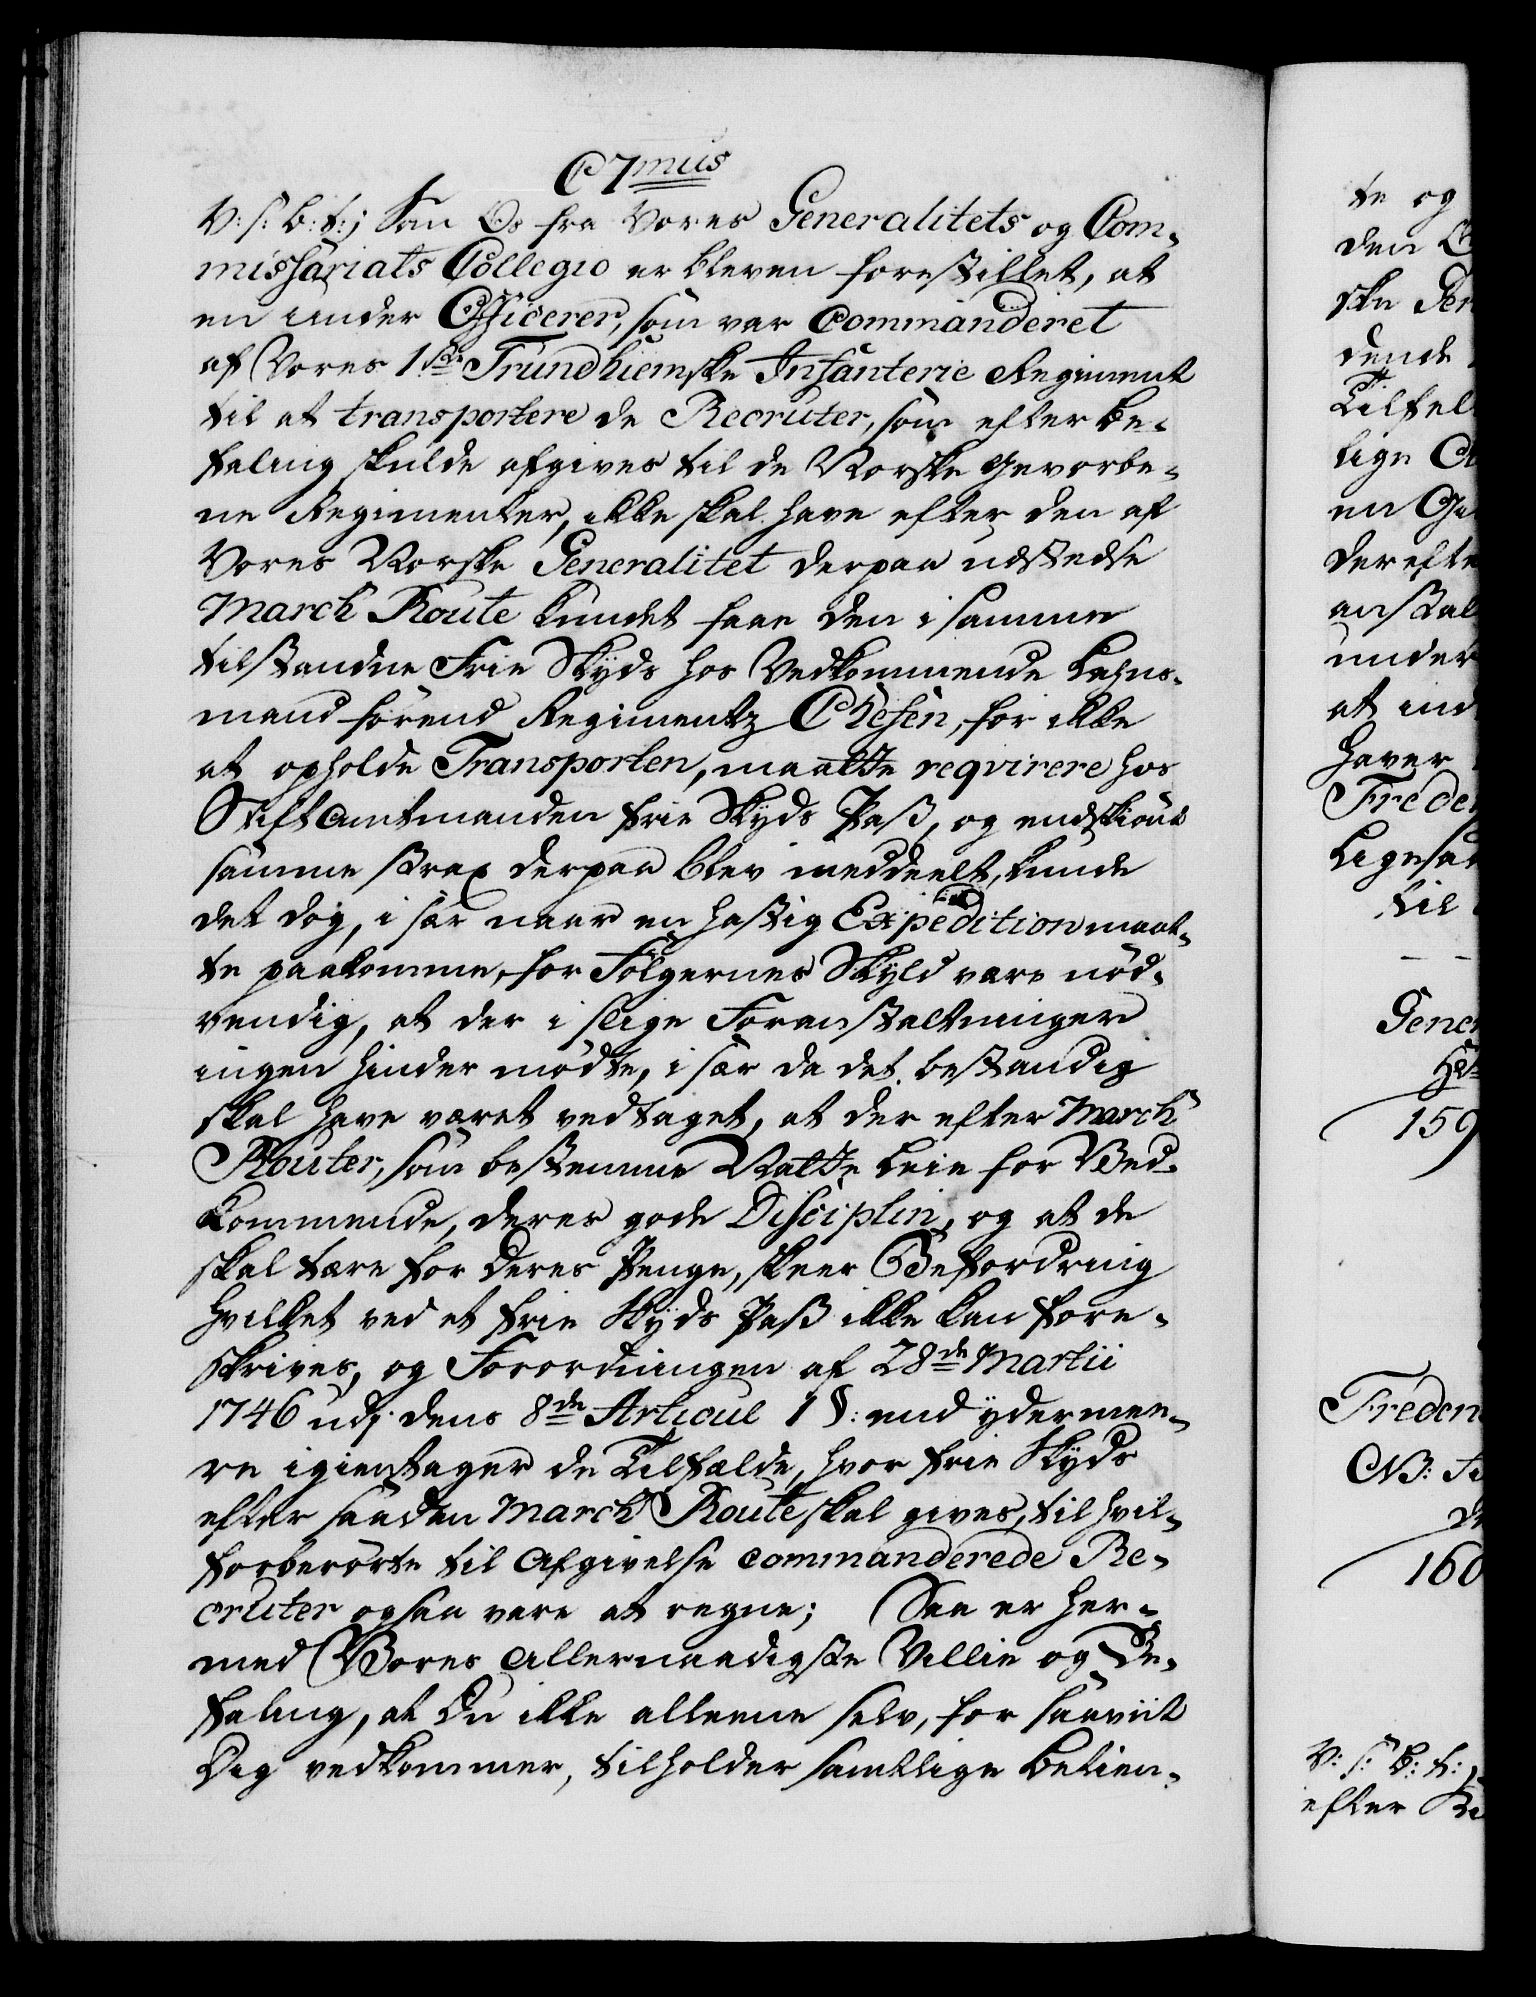 C7mus
V: S: b: t:; Saa Os fra Vores Generalitets og Com-
missariats Collegio er bleven forestillet, at
en under Officerer, som var Commanderet
af Vores 1ste Trundhiemske Infanterie Regiment
til at transportere de Recruter, som efter be-
faling skulde afgives til de Norske gevorbe-
ne Regimenter, ikke skal have efter den af
Vores Norske Generalitet derpaa udstedte
March Route kundet faae den i samme
tilstandne Frie Skyds hos Vedkommende Lehns-
mand førend Regimentz Chefen, for ikke
at opholde Transporten, maatte reqvirere hos
Stiftamtmanden frie Skyds Pass, og endskiønt
samme strax derpaa blev meddeelt, kunde
det dog, i sær naar en hastig Expedition maat-
te paakomme, for Følgernes Skyld være nød-
vendig, at der i slige Foranstaltninger
ingen hinder mødte, i sær da det bestandig
skal have været vedtaget, at der efter March
Router, som bestemme Natte Leie for Ved-
kommende, deres gode Disciplin, og at de
skal tære for deres Penge, skeer Befordring
hvilket ved et frie Skyds Pass ikke kan fore-
skrives, og Forordningen af 28de Martii
1746 udj dens 8de Articul 1 §: end ydermee-
re igientager de Tilfælde, hvor frie Skyds
efter saadan March Route skal gives, til hvil-
forberørte til Afgivelse commanderede Re-
cruter ogsaa vare at regne; Saa er her-
med Vores allernaadigste Villie og Be-
faling, at Du ikke alleene selv, for saaviit
Dig vedkommer, tilholder samtlige betien-
te og
den
ske
dende
Tilfel
lige
en
derefte
anstal
under
at ind
haver
Freder
Ligesaa
til
Gener
159
Freder
NB:
160
V: S: B: t:
efter